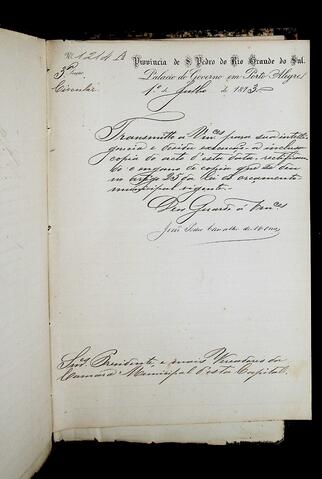 Nº 1214 A Provincia de S. Pedro do Rio Grande do Sul.
3ª Secção Palacio do Governo em Porto Alegre
Circular 1º de Julho de 1873.
Transmitto a Vmces para sua intelli-
gencia e devida execução a inclusa
copia do acto d'esta data, rectifican-
do o engano de copia que se deu
no artigo 25 da lei do orçamento
municipal vigente.
Deos Guarde a Vmces
João Pedro Carvalho de Moraes
Snres Presidente e mais Vereadores da
Camara Municipal d'esta Capital.